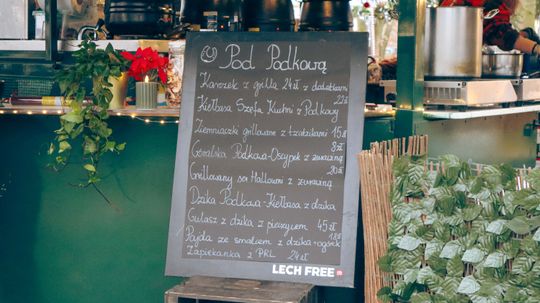 Pod Podkową
Karczek z grilla 24zł z dodatkami
22zł
Kiełbasa Szefa Kuchni z Podkowy
Ziemniaczki grillowane z tzatzikami 15zł
8zł
Góralska Podkowa-Oscypek z żurawiną
20zł
Grillowany ser Halloumi z żurawiną
Dzika Podkowa-Kiełbasa z dzika
Gulasz z dzika z pieczywem 45zł
18zł
Pajda ze smalcem z dzika+ogórek
Zapiekanka z PRL 24zł
LECH FREE